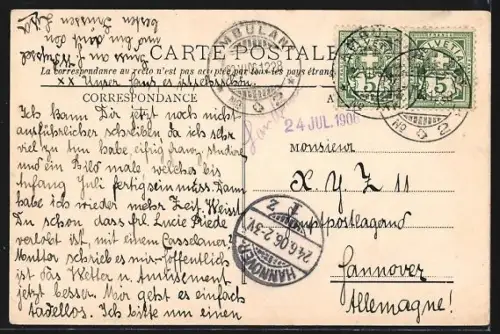 CARTE POSTALE
La correspondance au recto n'est pas acceptée par tous les pays étrang
xx Unser Haus ist jetzt schön.
CORRESPONDANCE
AMBULAN
HELVETIA
5
5
24 JUL. 1906
Ich kann Dir jetzt noch nicht
ausführlicher schreiben da ich sehr
viel zu tun habe, eifrig franz. studiere
und ein Bild male welches bis
Anfang Juli fertig sein muss. Dann
habe ich wieder mehr Zeit. Weist
Du schon dass Frl. Lucie Friede
verlobt ist, mit einem Casselaner?
Mutter schrieb es mir. Hoffentlich
ist das Wetter u. Amusement
jetzt besser. Mir geht es einfach
tadellos. Ich bitte um einen
Monsieur
X Y Z 11
Hauptpostlagernd
Hannover
Allemagne!
HANNOVER
1 z
24.6.06.2-3V.